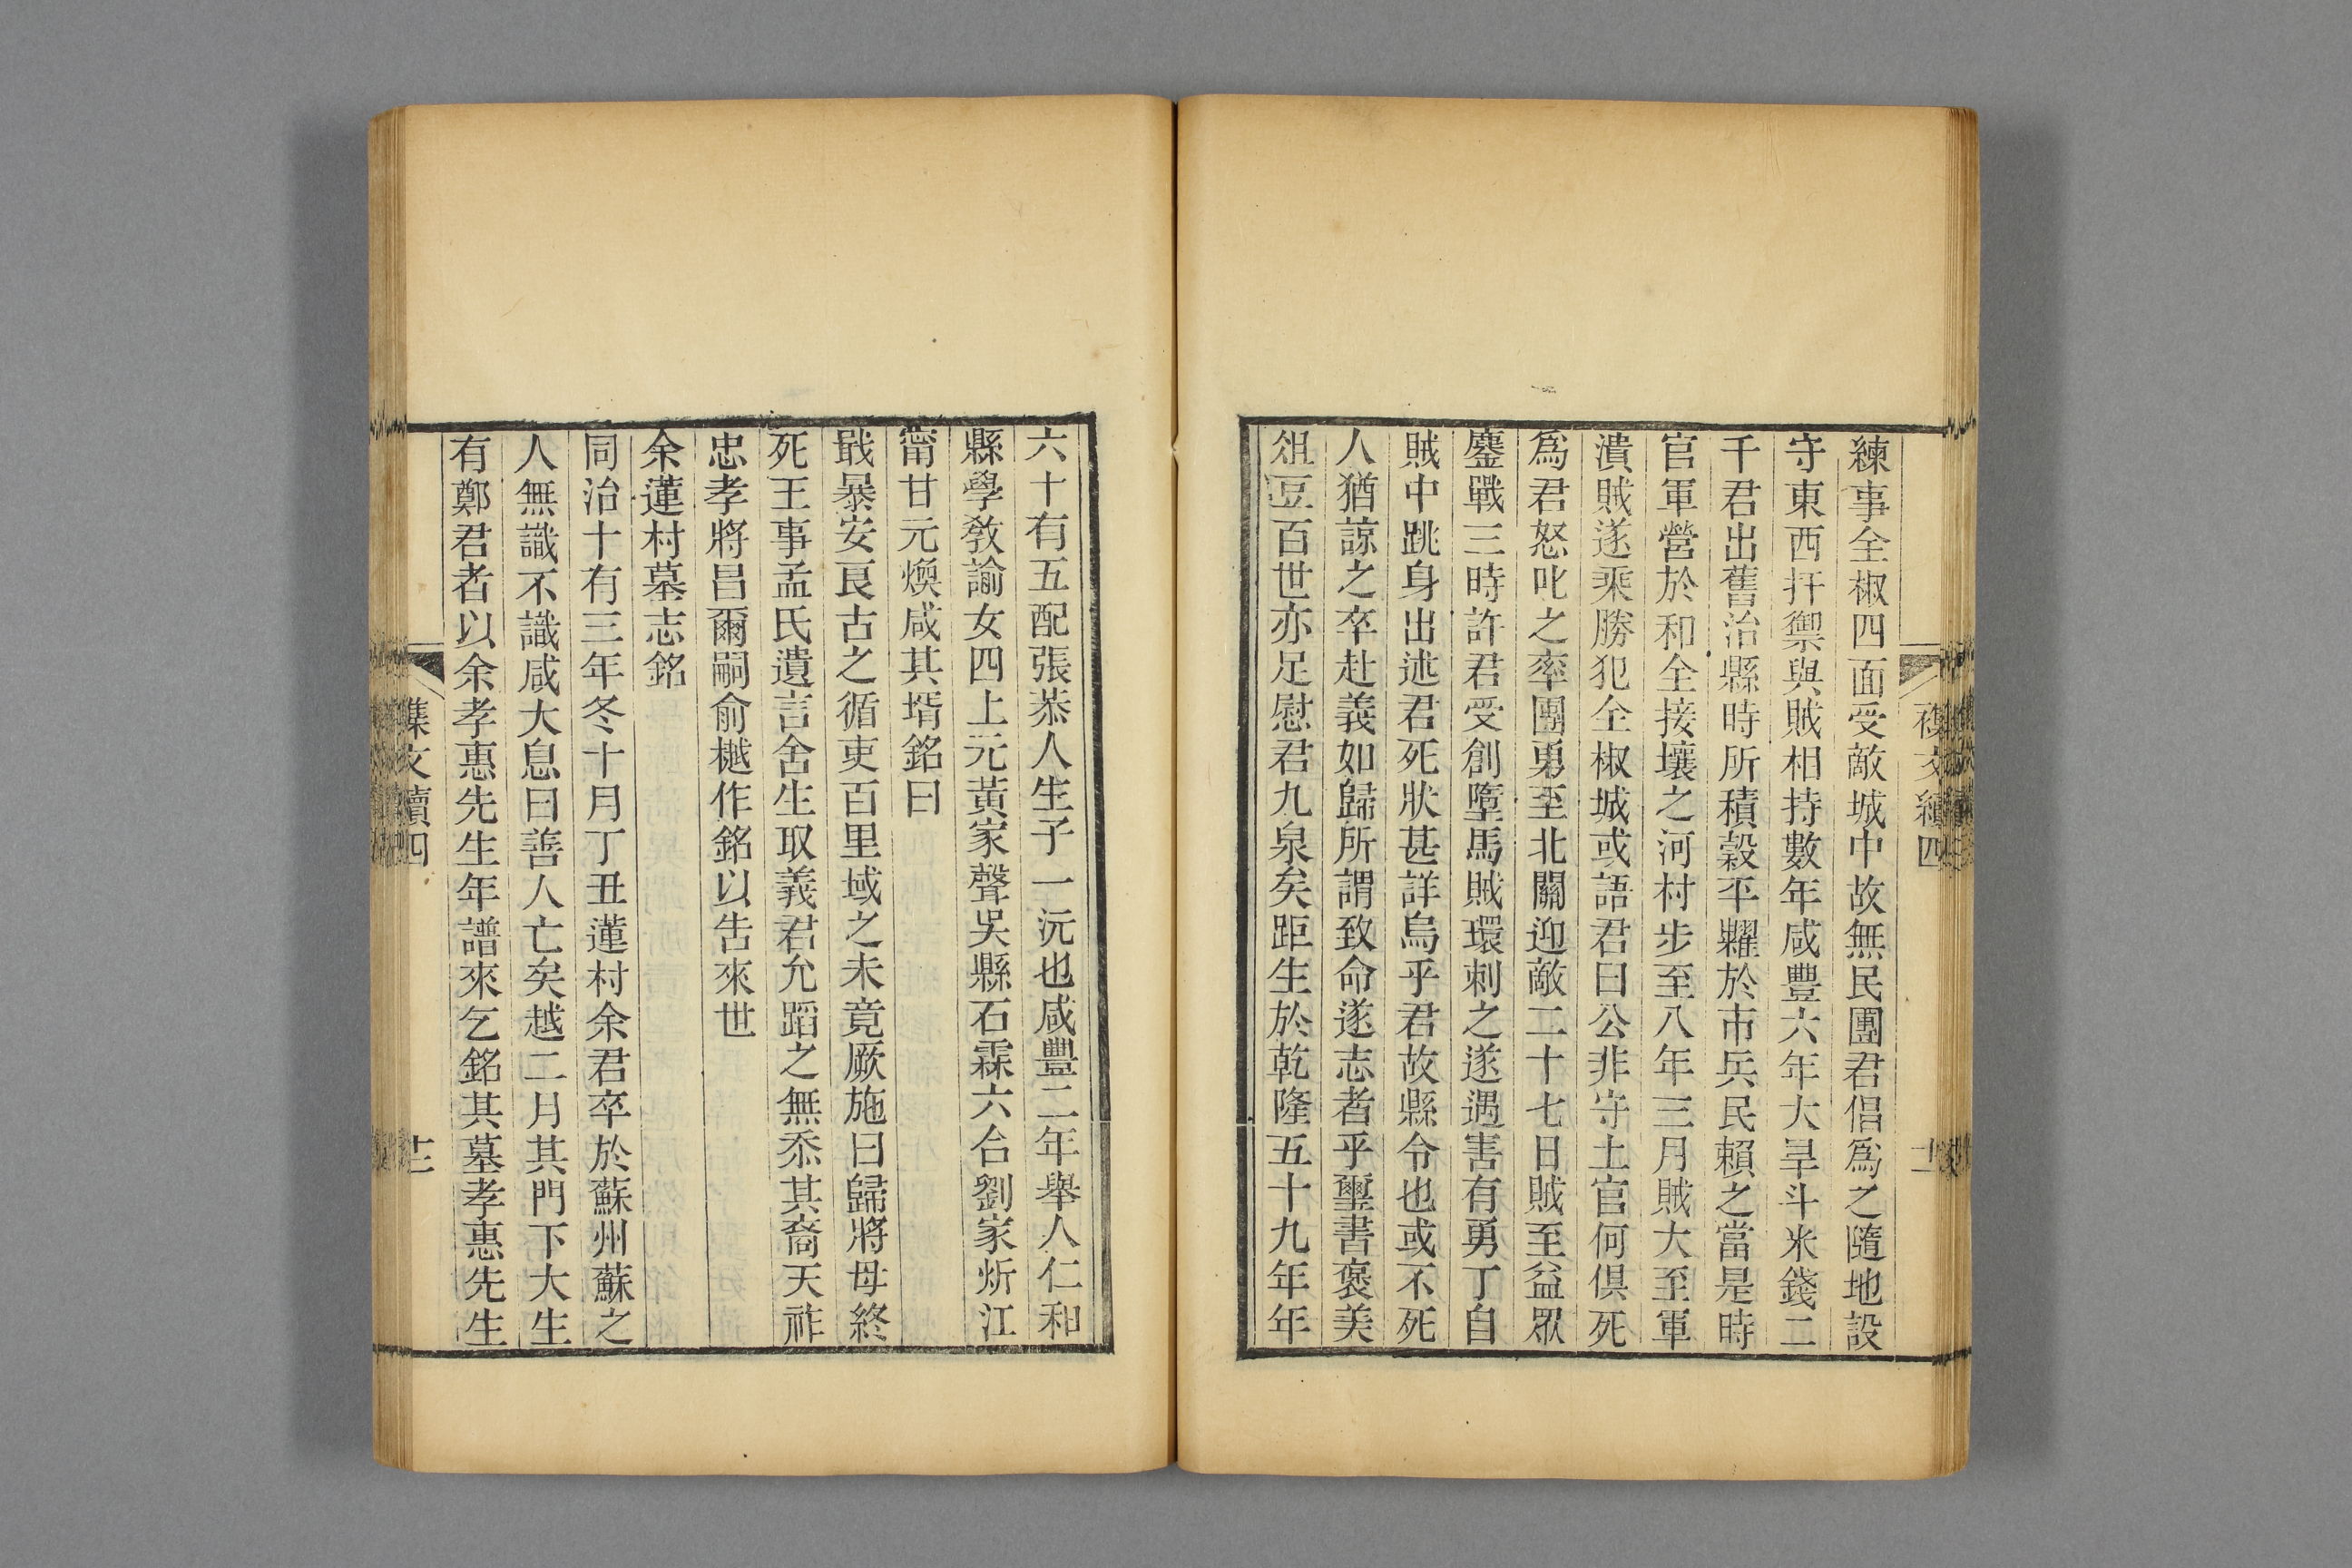 練事全椒四面受敵城中故無民團君倡爲之隨地設
守東西扞禦與賊相持數年咸豐六年大旱斗米錢二
千君出舊治縣時所積榖平糶於市兵民賴之當是時
官軍營於和全接壤之河村步至八年三月賊大至軍
潰賊遂乘勝犯全椒城或語君曰公非守土官何俱死
爲君怒叱之率團勇至北關迎敵二十七日賊至益眾
鏖戰三時許君受創墮馬賊環刺之遂遇害有勇丁自
賊中跳身出述君死狀甚詳烏乎君故縣令也或不死
人猶諒之卒赴義如歸所謂致命遂志者乎璽書褒美
俎豆百世亦足慰君九泉矣距生於乾隆五十九年年
六十有五配張恭人生子一沅也咸豐二年舉人仁和
縣學敎諭女四上元黃家聲吳縣石霖六合劉家炘江
甯甘元煥咸其壻銘曰
戢暴安良古之循吏百里域之未竟厥施曰歸將母終
死王事孟氏遺言舍生取義君允蹈之無忝其裔天祚
忠孝將昌爾嗣俞樾作銘以告來世
余蓮村墓志銘
同治十有三年冬十月丁丑蓮村余君卒於蘇州蘇之
人無識不識咸大息曰善人亡矣越二月其門下大生
有鄭君者以余孝惠先生年譜來乞銘其墓孝惠先生
文續四